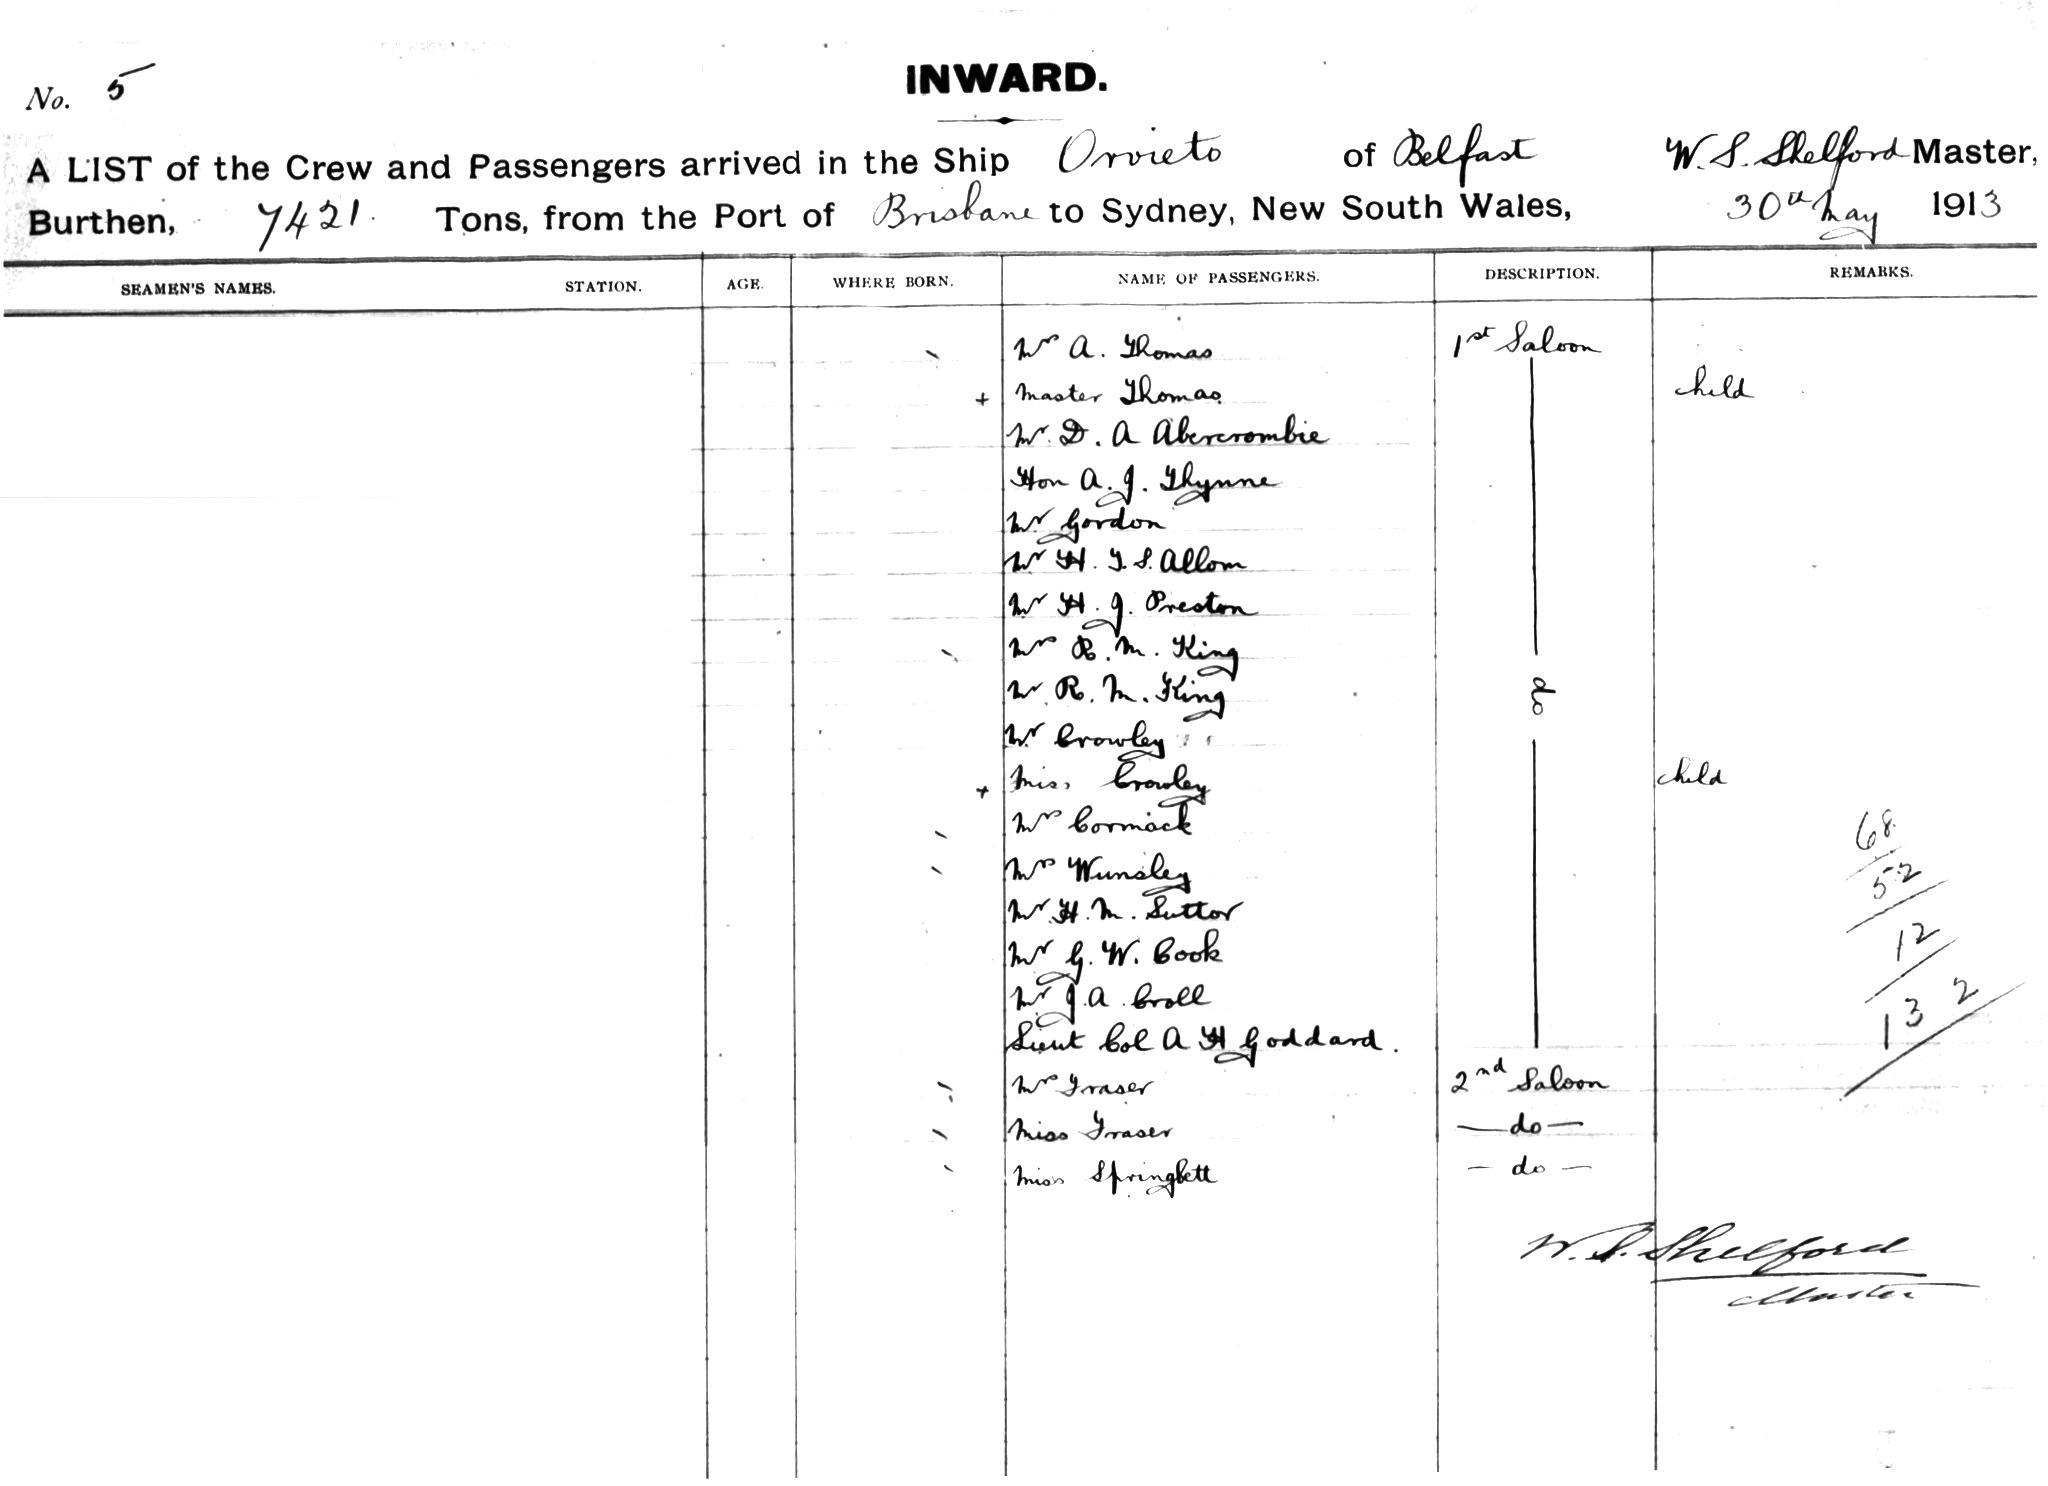 No. 5
INWARD.
A LIST of the Crew and Passengers arrived in the Ship Orvieto of Belfast W. S. Shelford Master,
Burthen, 7421. Tons, from the Port of Brisbane to Sydney, New South Wales, 30th May 1913
SEAMEN'S NAMES. STATION. AGE. WHERE BORN. NAME OF PASSENGERS. DESCRIPTION. REMARKS.
Mrs A. Thomas 1st Saloon
+ Master Thomas child
Mr. D. A Abercrombie
Hon A. J. Thynne
Mr Gordon
Mr H. T. S. Allom
Mr H. J. Preston
Mrs R. M. King
Mr R. M. King do
Mr Crowley
+ Miss Crowley child
Mrs Cormack 68
Mrs Wunsley 52
Mr H. M. Suttor 12
Mr G. W. Cook
Mr J. A. Croll 132
Lieut Col A H Goddard.
Mrs Fraser 2nd Saloon
Miss Fraser —do—
Miss Springbett — do —
W. S. Shelford
Master